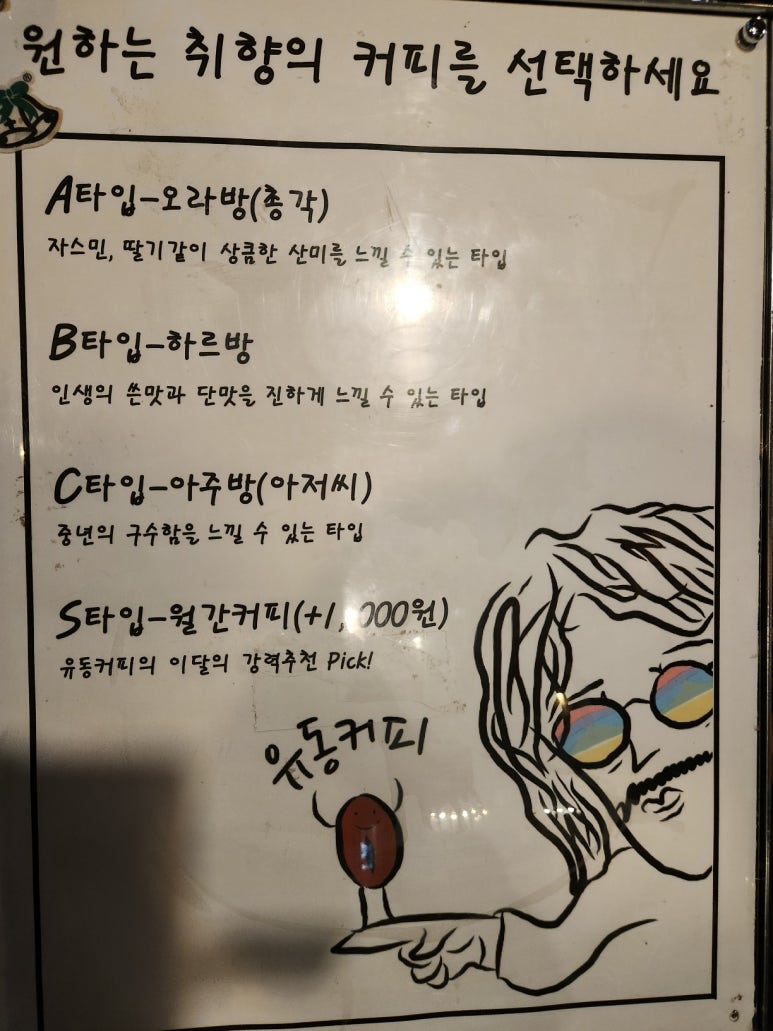 원하는 취향의 커피를 선택하세요
A타입-오라방(총각)
자스민, 딸기같이 상큼한 산미를 느낄 수 있는 타입
B타입-하르방
인생의 쓴맛과 단맛을 진하게 느낄 수 있는 타입
C타입-아주방(아저씨)
중년의 구수함을 느낄 수 있는 타입
S타입-월간커피(+1,000원)
유동커피의 이달의 강력추천 Pick!
유동커피